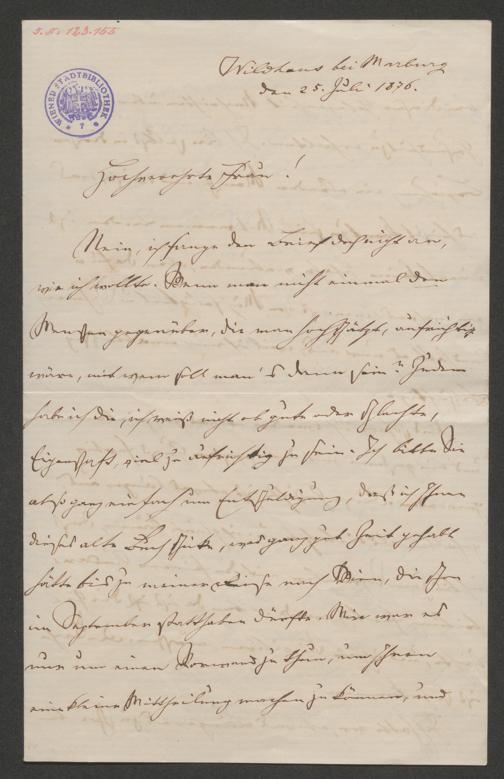 J. N. 123.155
WIENER STADTBIBLIOTHEK
Wildhaus bei Marburg
den 25. Juli 1876.
Hochverehrte Frau!
Nein, ich fange den Brief doch nicht an,
wie ich wollte. Wenn man nicht einmal den
Menschen gegenüber, die man hochschätzt, aufrichtig
wäre, mit wem soll man's dann sein? Zudem
habe ich die, ich weiß nicht ob gute oder schlechte,
Eigenschaft, viel zu aufrichtig zu sein. Ich bitte Sie
also ganz einfach um Entschuldigung, daß ich Ihnen
dieses alte Buch schicke, was ganz gut Zeit gehabt
hätte bis zu meiner Reise nach Wien, die schon
im September statthaben dürfte. Mir war es
nur um einen Vorwand zu thun, um Ihnen
eine kleine Mittheilung machen zu können, und